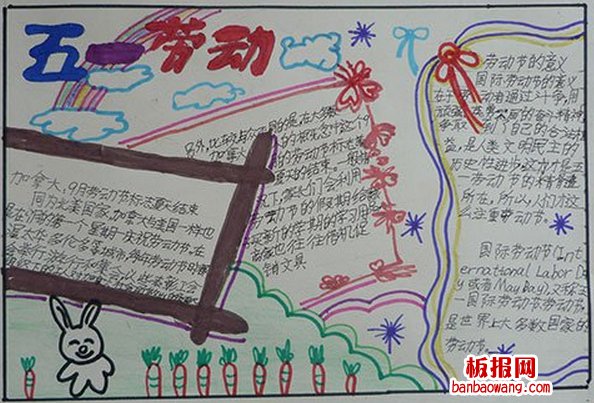 五一劳动
加拿大，9月劳动节标志夏天结束
同为北美国家，加拿大与美国一样也
是在9月的第一个星期一庆祝劳动节。在
多伦多等城市，每年劳动节时都
会举行游行
的是，在大多数
加拿大
的劳动节标志着
的结束。一般
下，家长们会利用
劳动节的假期给
新的学期的学习用
商家也往往借机促
销文具
劳动节的意义
国际劳动节的意义
在于劳动者通过斗争，用
顽强、
的奋斗精神
争取到了自己的合法权
益，是人类文明民主的
历史性进步，这才是五
一劳动节的精髓
所在。所以人们才这
么注重劳动节。
国际劳动节(Int
ernational Labor Da
y或者MayDay)，又称五
一国际劳动节、劳动节，
是世界上大多数国家的
劳动节。
板报网
banbaowang.com